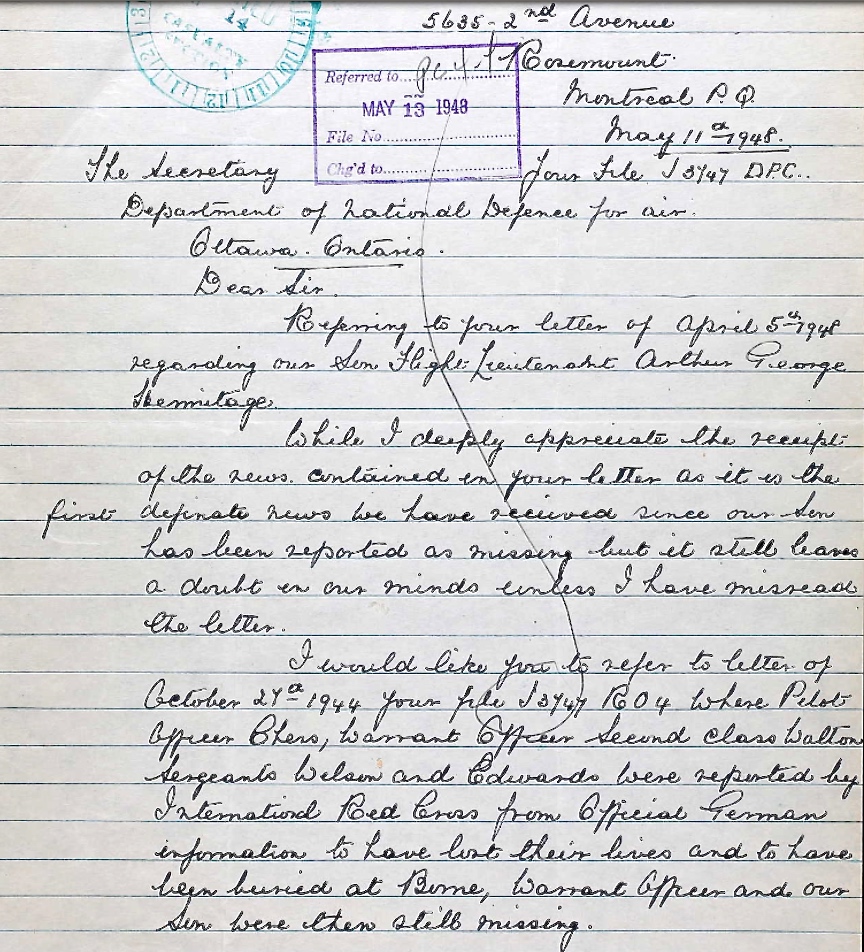 14
CASUALTY
SECTION
5635-2nd Avenue
Rosemount.
Montreal P.Q.
May 11th 1948.
Referred to
MAY 13 1948
File No
Chg'd to
The Secretary
Your File J3747 D.P.C..
Department of National Defence for air.
Ottawa. Ontario.
Dear Sir.
Referring to your letter of April 5th 1948
regarding our Son Flight Lieutenant Arthur George
Hermitage.
While I deeply appreciate the receipt
of the news. contained in your letter as it is the
first definate news we have received since our Son
has been reported as missing but it still leaves
a doubt in our minds unless I have misread
the letter.
I would like you to refer to letter of
October 27th 1944 your file J3747 RO4 where Pilot
Officer Chers, Warrant Officer Second class Walton
Sergeants Wilson and Edwards were reported by
Internationl Red Cross from Official German
information to have lost their lives and to have
been buried at Borne, Warrant Officer and our
Son were then still missing.